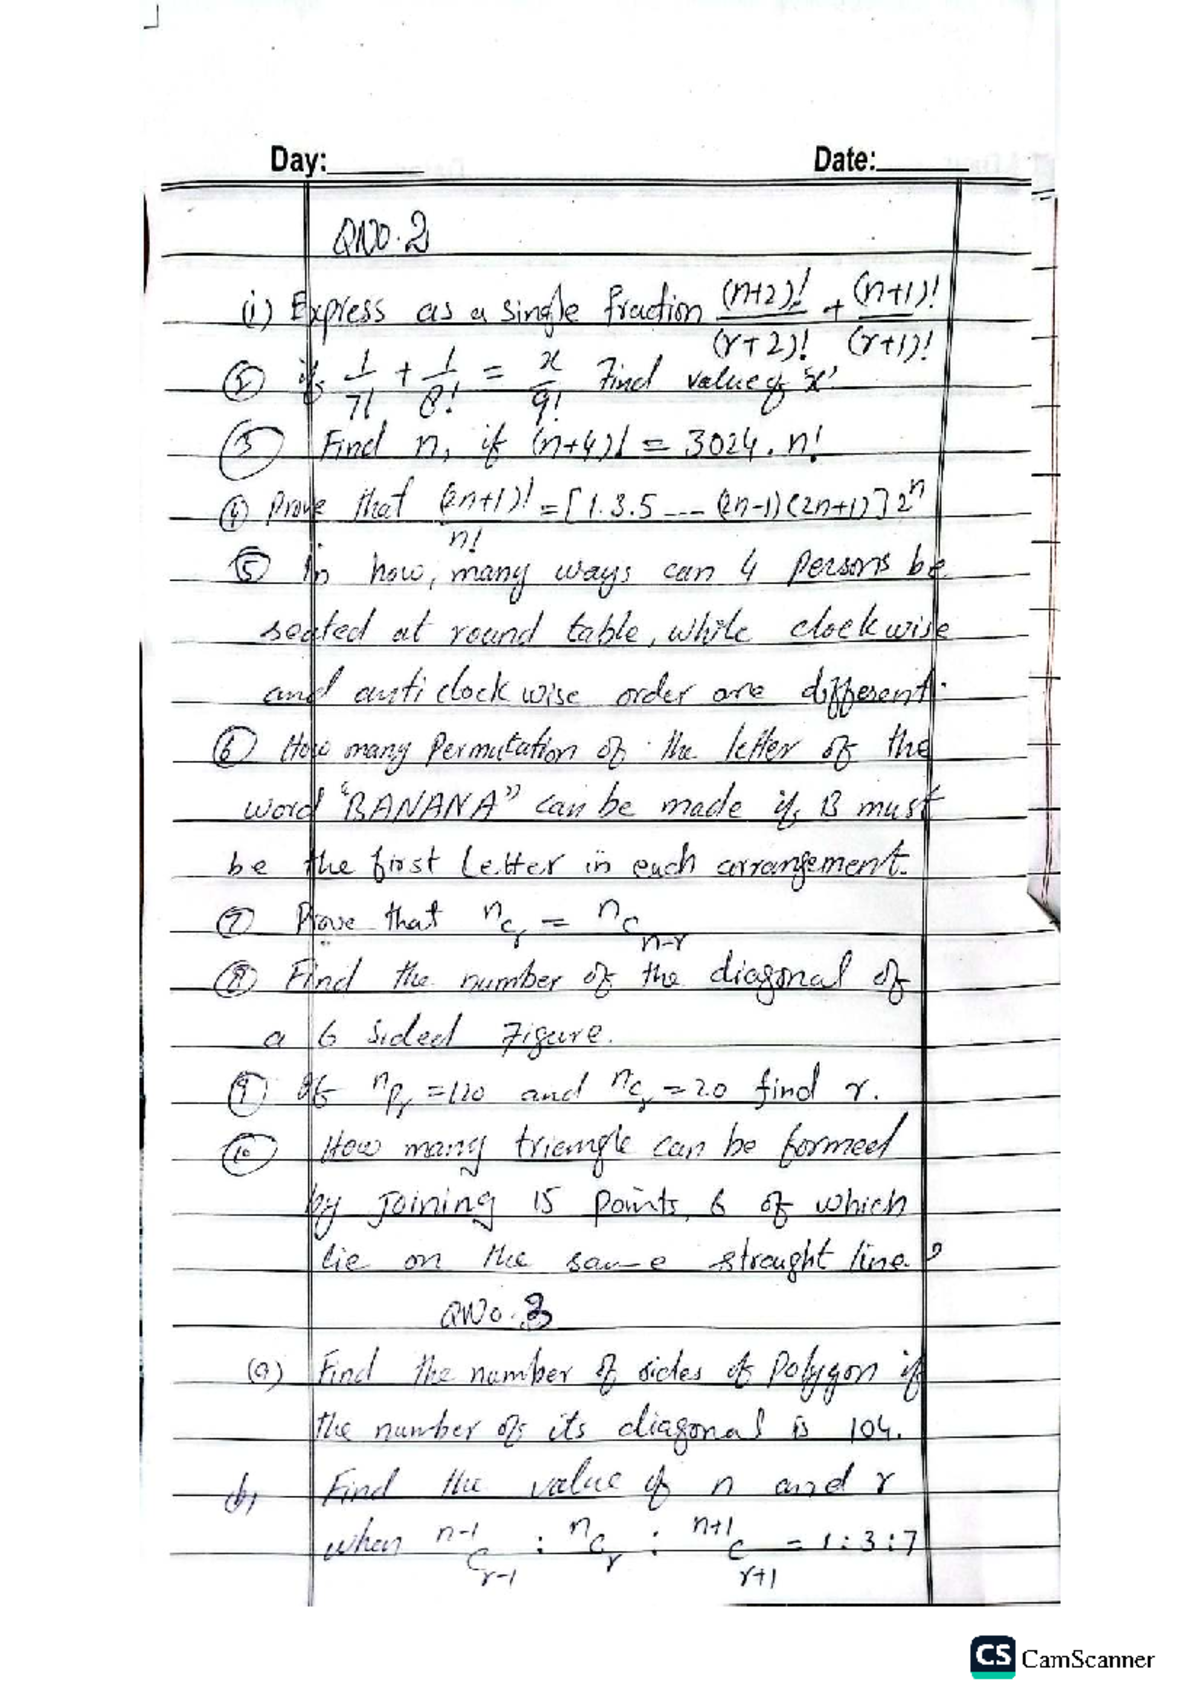 Day:______ Date:______
QNO.2
(i) Express as a single fraction (n+2)!/(r+2)! + (n+1)!/(r+1)!
② if 1/7! + 1/8! = x/9! Find value of 'x'
③ Find n, if (n+4)! = 3024. n!
④ Prove that (2n+1)!/n! = [1.3.5 --- (2n-1)(2n+1)] 2^n
⑤ In how, many ways can 4 persons be
seated at round table, while clockwise
and anti clock wise order are different.
⑥ How many Permutation of the letter of the
word "BANANA" can be made if B must
be the first Letter in each arrangement.
⑦ Prove that nCr = nCn-r
⑧ Find the number of the diagonal of
a 6 sided Figure.
⑨ If nPr = 120 and nCr = 20 find r.
⑩ How many triangle can be formed
by joining 15 points, 6 of which
lie on the same straught line?
QNo.3
(a) Find the number of sides of Polygon if
the number of its diagonal is 104.
(b) Find the value of n and r
when n-1Cr-1 : nCr : n+1Cr+1 = 1:3:7
CS CamScanner